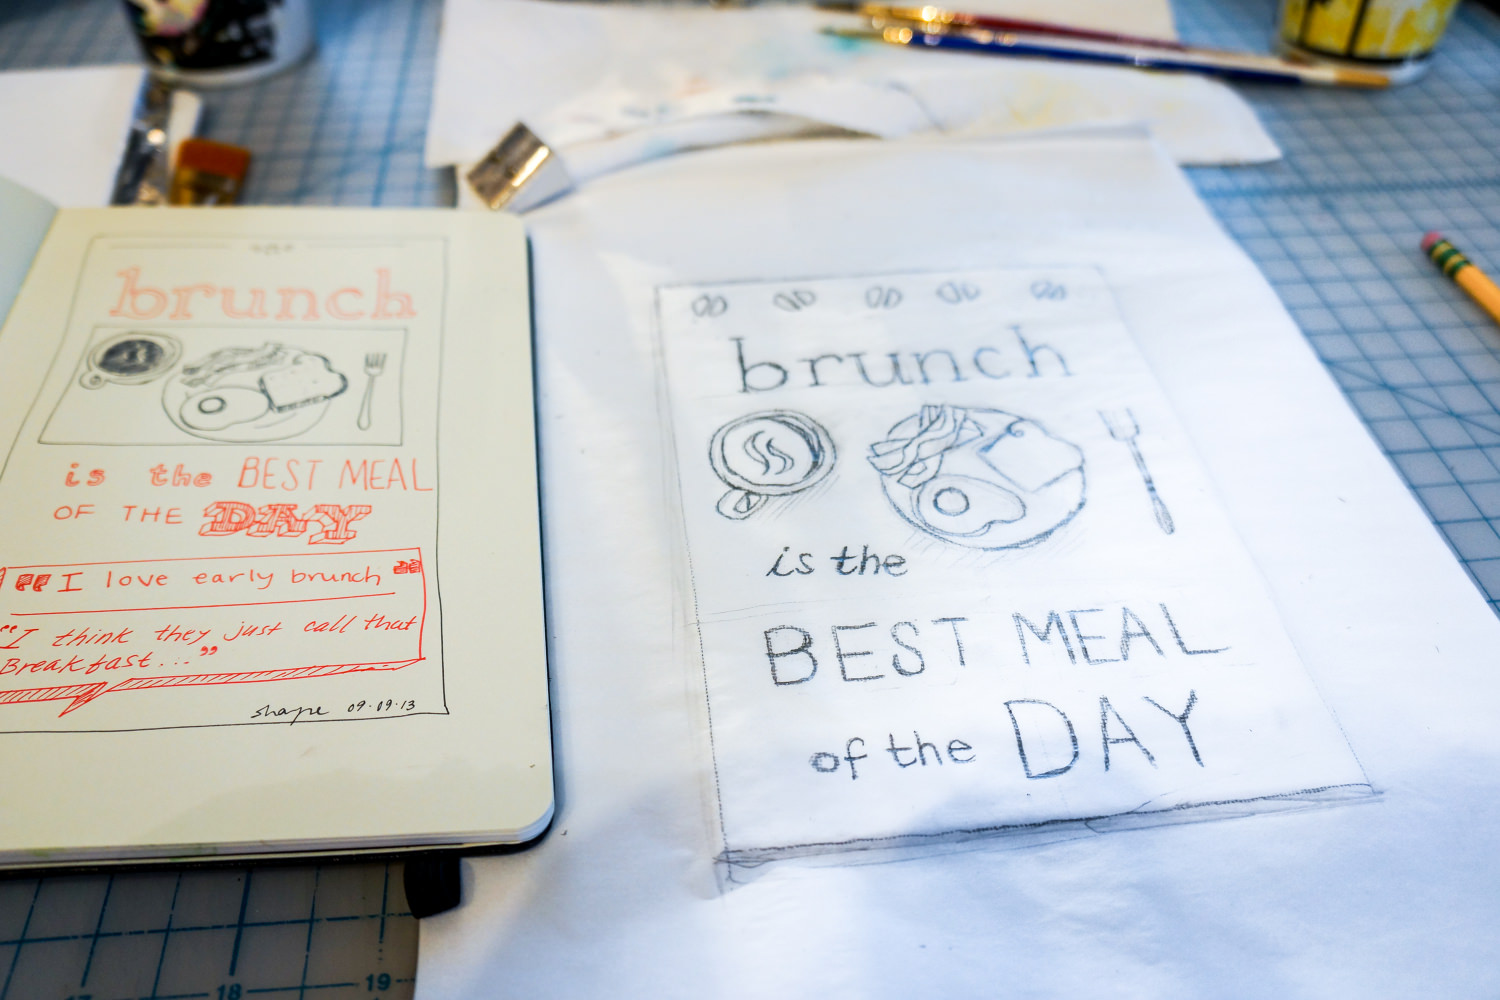 brunch
is the BEST MEAL
OF THE DAY
"I love early brunch"
"I think they just call that
Breakfast..."
shape 09.09.13
brunch
is the
BEST MEAL
of the DAY
18
19